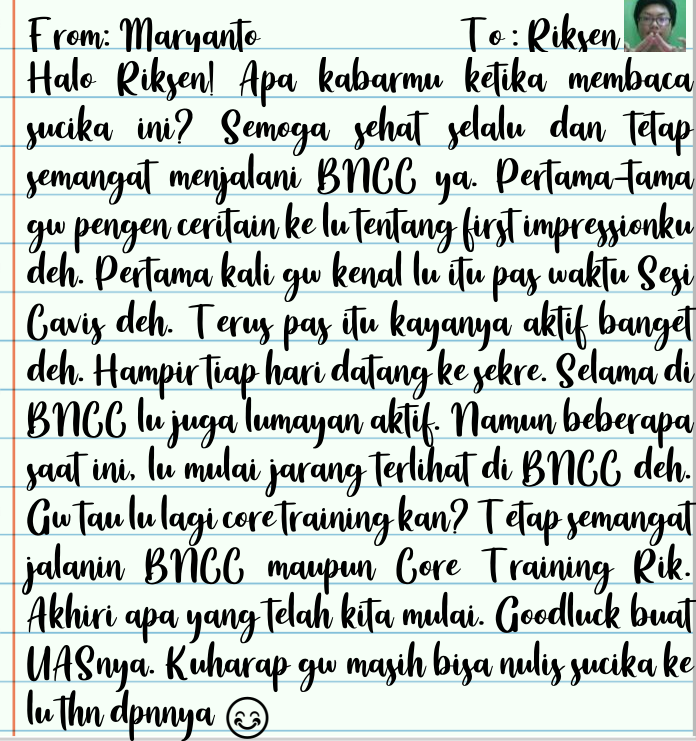 From: Maryanto To : Riksen
Halo Riksen! Apa kabarmu ketika membaca
sucika ini? Semoga sehat selalu dan tetap
semangat menjalani BNCC ya. Pertama-tama
gw pengen ceritain ke lu tentang first impressionku
deh. Pertama kali gw kenal lu itu pas waktu Sesi
Cavis deh. Terus pas itu kayanya aktif banget
deh. Hampir tiap hari datang ke sekre. Selama di
BNCC lu juga lumayan aktif. Namun beberapa
saat ini, lu mulai jarang terlihat di BNCC deh.
Gw tau lu lagi core training kan? Tetap semangat
jalanin BNCC maupun Core Training Rik.
Akhiri apa yang telah kita mulai. Goodluck buat
UASnya. Kuharap gw masih bisa nulis sucika ke
lu thn dpnnya 😊